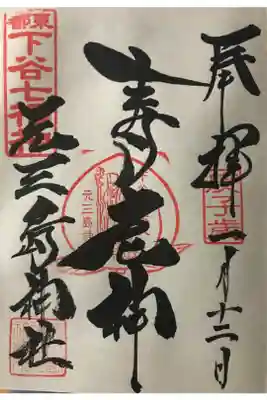 奉拝
一月十二日
寿老神
東都
下谷七福神
元三島神社